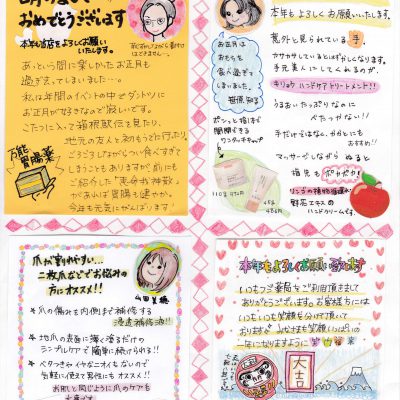 明けまして
おめでとうございます
本年も当店をよろしくお願い
いたします。
あっという間に楽しかったお正月も
過ぎ去ってしまいました…。
私は年間のイベントの中でダントツに
お正月が好きなので寂しいです。
こたつに入って箱根駅伝を見たり、
地元の友人と初もうでに行ったり。
どうしてもついつい食べすぎて
しまうこともありますが前にも
ご紹介した「恵命我神散」
があれば胃腸も健やか。
今年も元気にがんばります!
万能
胃腸薬
本年もよろしくお願いいたします。
お正月は
おもちを
食べ過ぎて
しまいました。
意外と見られている手。
カサカサしているとはずかしくなります。
手元美人にしてくれるのが、
キリョウ ハンドケアトリートメント!!
うるおいたっぷりなのに
べたつかない!!
手だけではなく、かかとにも
おすすめ!!
マッサージしながら ぬると
指先も ポカポカ!
リンゴの植物幹細胞
野花エキスの
ハンドクリームです。
ポンッと指で
開閉できる
ワンタッチキャップ
爪が割れやすい…
二枚爪などでお悩みの
方にオススメ!!
爪の傷みを内側まで補修する
浸透補修液!!
地爪の表面に薄く塗るだけの
シンプルケアで簡単に続けられる!!
ベタつきやイヤなニオイもないので
気軽に使えて男性にもオススメ!!
お肌と同じように爪のケアも
本年もよろしくお願い致します
いつも当薬局をご利用頂きまして
ありがとうございます。お客様方には
いつもいつも笑顔を分けて頂いて
おります
年になりますように
大吉